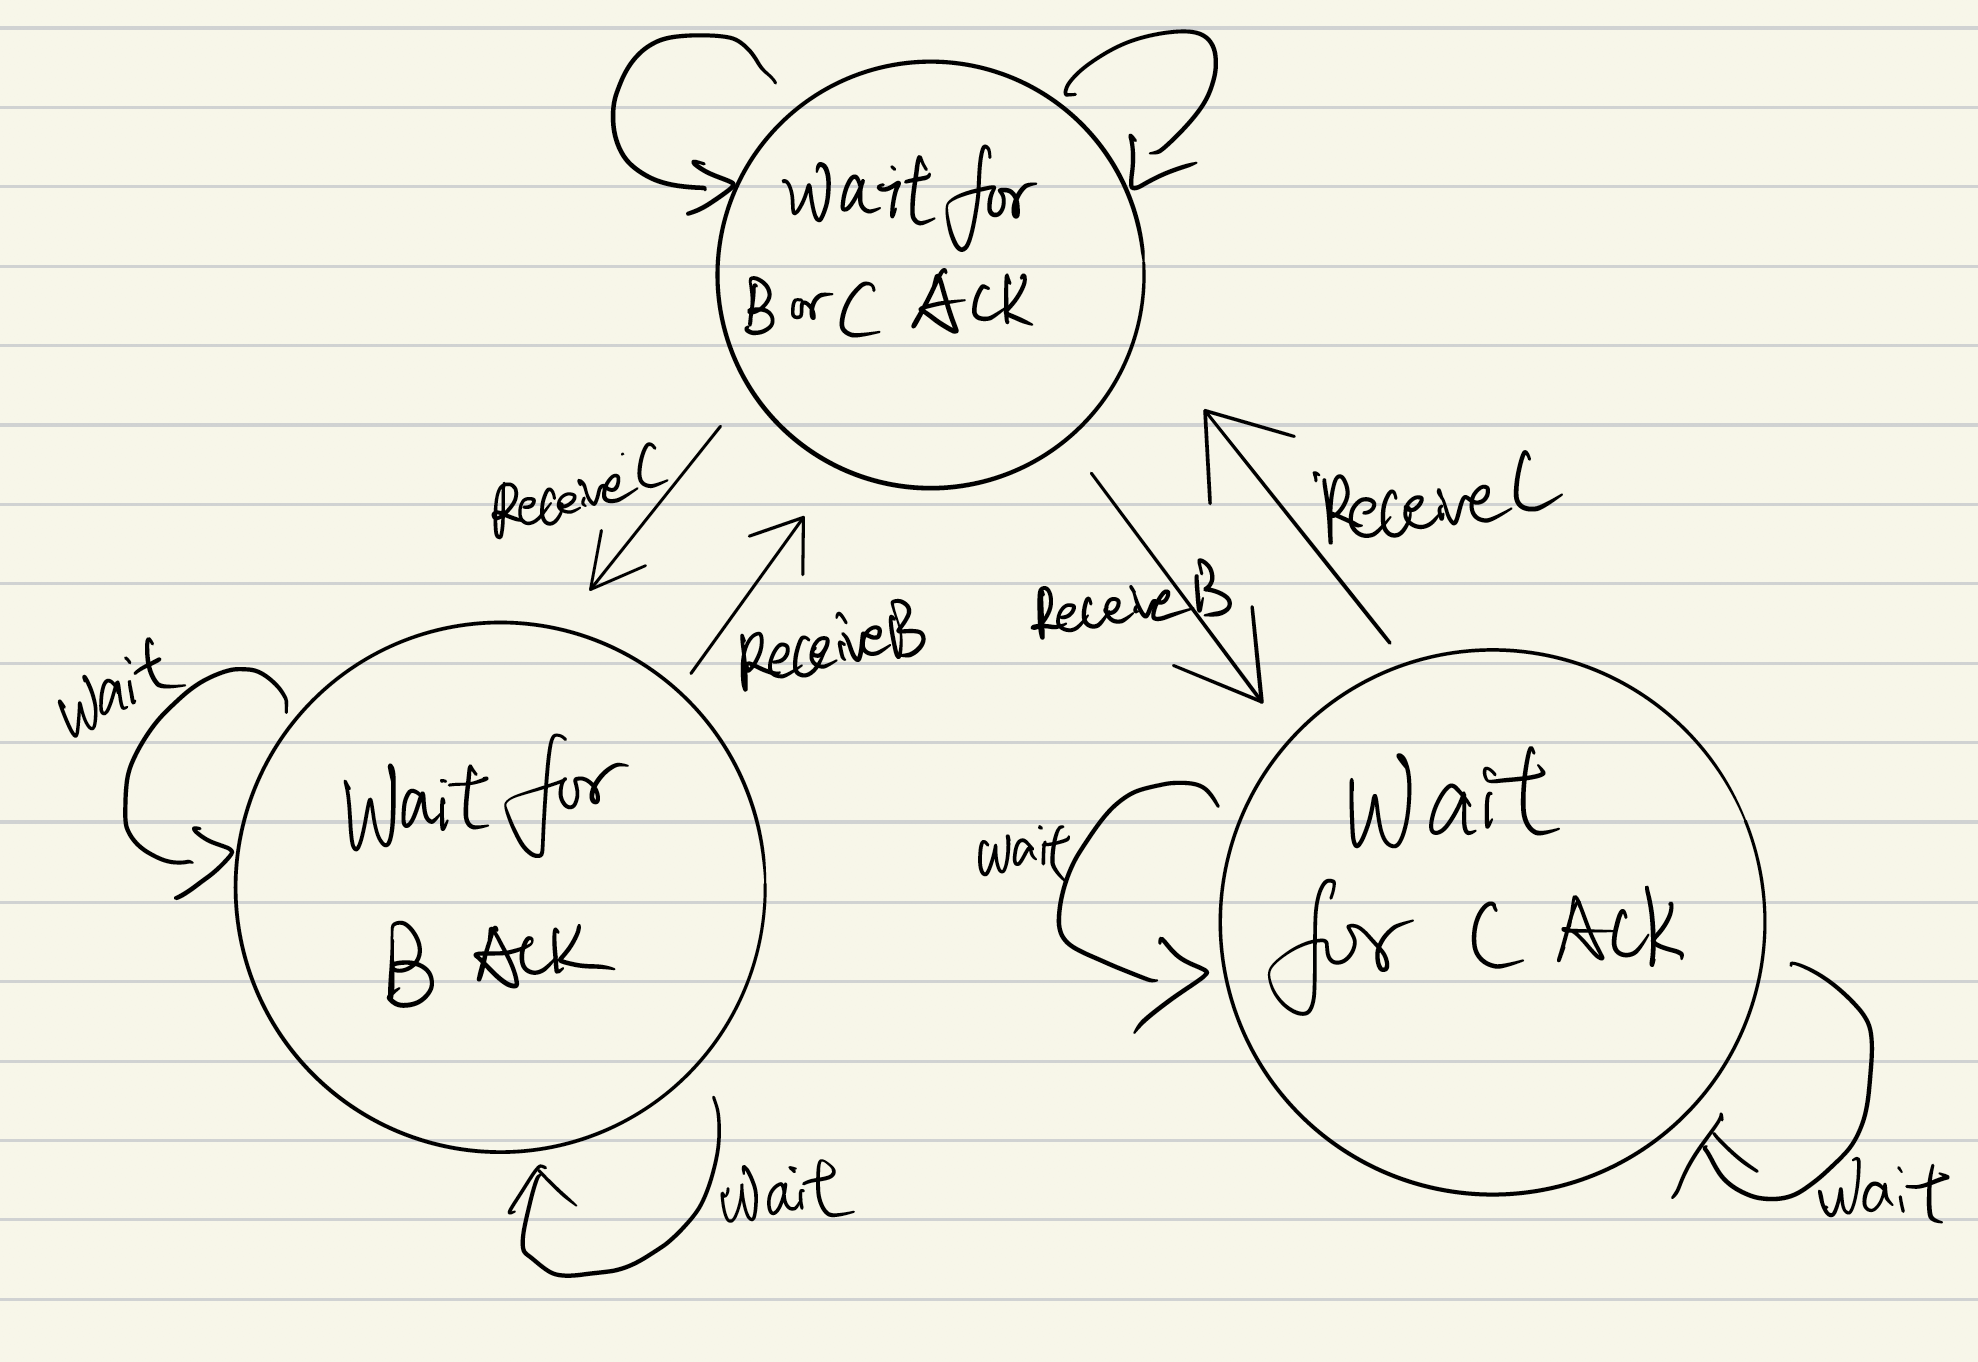 Wait for
B or C ACK
Receive C
Receive C
Receive B
Receive B
Wait
Wait for
B ACK
Wait
Wait
for C ACK
Wait
Wait